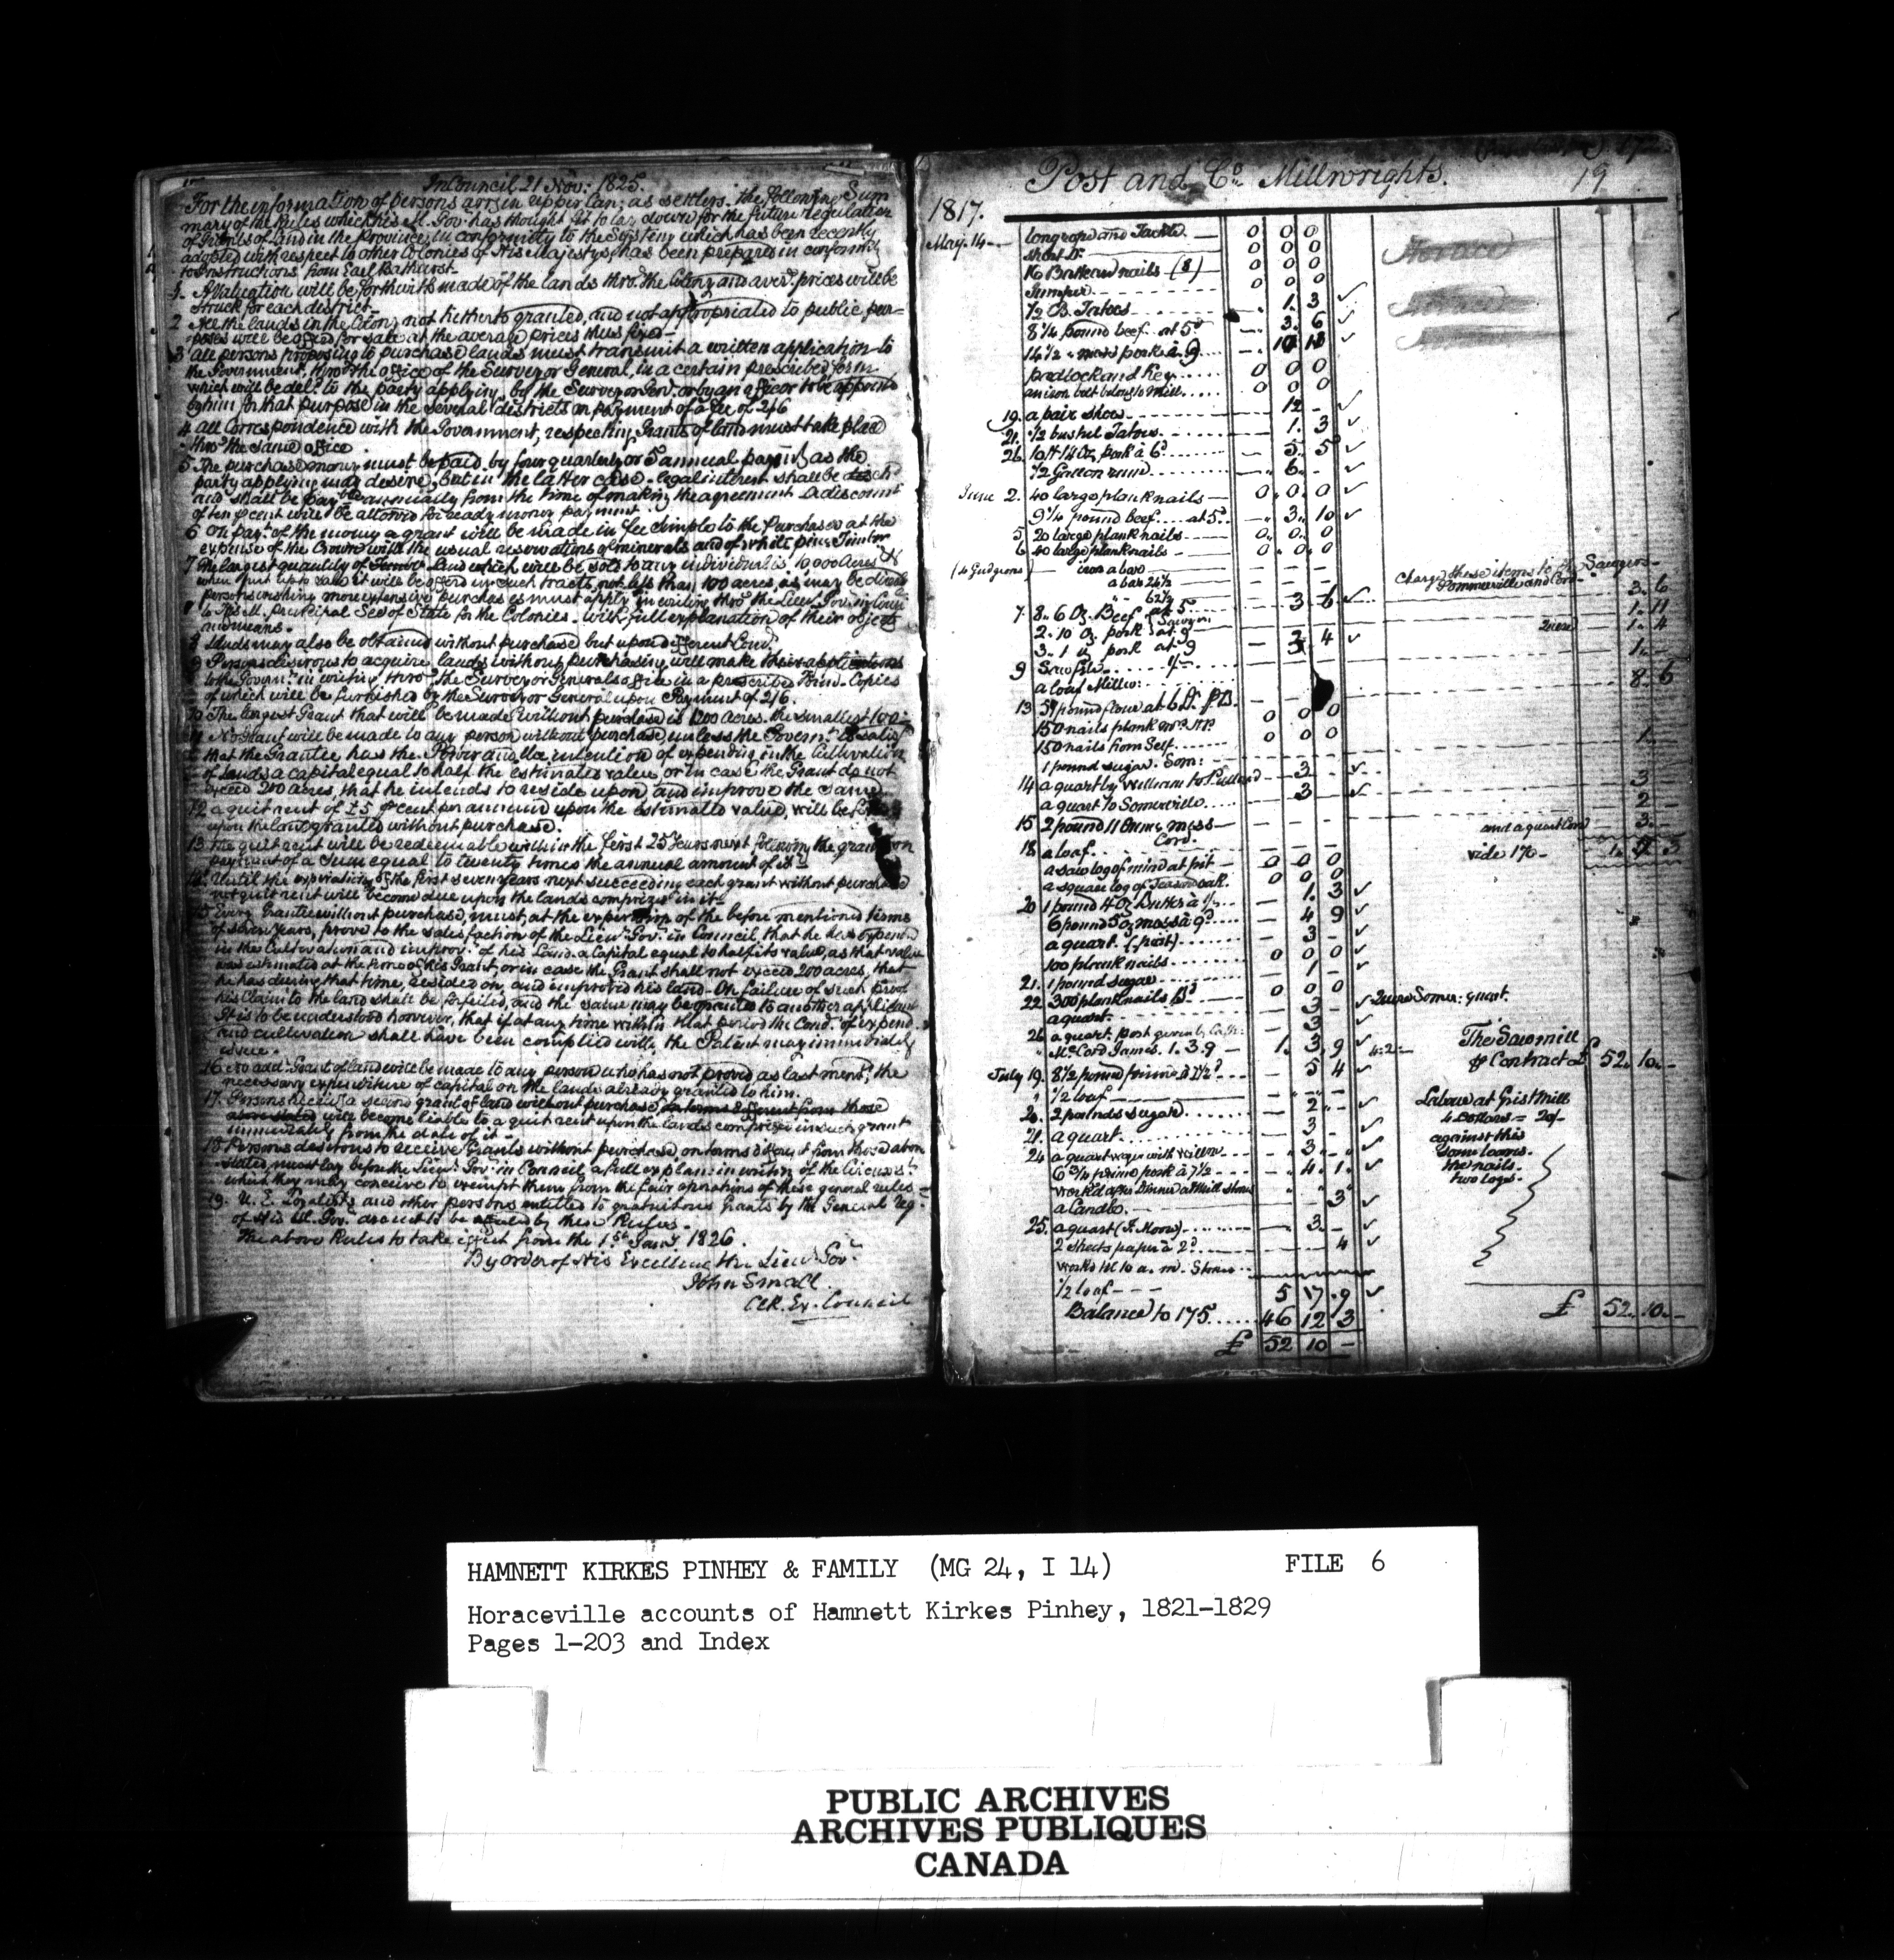 In Council 21 Nov: 1825.
For the information of persons arrg in upper Can: as settlers. the following Sum
mary of the Rules which his M. Gov. has thought fit to lay down for the future regulation
of Grants of Land in the Province, in conformity to the System which has been recently
adopted with respect to other Colonies of His Majesty, has been prepared in conformity
to Instructions from Earl Bathurst.
1. A Valuation will be forthwith made of the lands thro. the Colony and aver. prices will be
struck for each district.
2 All the lands in the Colony not hitherto granted, and not appropriated to public pur=
poses will be offered for sale at the average prices thus fixed
3 All persons proposing to purchase lands must transmit a written application to
the Government, thro' the office of the Surveyor General, in a certain prescribed form
which will be deld to the party applying, by the Surveyor Genl. or by an officer to be appointed
by him for that purpose in the several districts on payment of a fee of 2/6
4 All Correspondence with the Government, respecting Grants of land must take place
thro' the same office.
5 The purchase money must be paid by four quarterly or 5 annual paymts as the
party applying may desire, but in the latter case legal interest shall be
and shall be payble annually from the time of making the agreement A discount
of ten p cent will be allowed for ready money payment.
6 On payt. of the money a grant will be made in fee simple to the Purchaser at the
expense of the Crown with the usual reservations of minerals and of white pine Timber
7 The largest quantity of Land which will be sold to any individual is 10000 Acres &
when put up to sale it will be offered in such tracts not less than 100 acres as may be
persons wishing more extensive purchases must apply in writing thro' the Lieut. Gov. in Coun
to His M. principal Secy of State for the Colonies. with full explanation of their objects
and means.
8 Lands may also be obtained without purchase but upon different Cond.
9 Persons desirous to acquire lands without purchasing will make their applications
to the Governt. in writing thro' the Surveyor Generals office in a prescribed Form. Copies
of which will be furnished by the Surveyor General upon Payment of 2/6.
10 The largest Grant that will be made without purchase is 1200 acres. the smallest 100.
11 No Grant will be made to any person without purchase, unless the Governt. is satisfd
that the Grantee has the Power and the intention of expending in the Cultivation
of lands a capital equal to half the estimated value, or in case the Grant do not
exceed 200 acres, that he intends to reside upon and improve the same
12 a quit rent of £5 p cent per annum upon the estimated value, will be
upon the land granted without purchase.
13 The quit rent will be redeemable within the first 25 Years next following the grant on
payment of a Sum equal to twenty times the annual amount of it
14. Until the expiration of the first seven years next succeeding each grant without purchase
no quit rent will become due upon the lands comprized in it
15 Every Grantee without purchase, must, at the expiration of the before mentioned terms
of seven years, prove to the satisfaction of the Lieut. Govr. in Council, that he has expended
in the Cultivation and improvt. of his Land a Capital equal to half its value, as that value
was estimated at the time of his Grant, or in case the Grant shall not exceed 200 acres, that
he has during that time, resided on, and improved his land. On failure of such proof
his Claim to the land shall be forfeited, and the same may be granted to another applicant
It is to be understood however, that if at any time within that period the Cond. of expend.
and cultivation shall have been complied with, the Patent may immediately
issue.
16 No addl. Grant of land will be made to any person who has not proved as last mentd, the
necessary expenditure of capital on the lands already granted to him.
17. Persons receivg a second grant of land without purchase on terms different from those
above stated will become liable to a quit rent upon the lands comprized in such grant
immediately from the date of it
18 Persons desirous to receive Grants without purchase on terms different from those above
stated, must lay before the Lieut. Gov. in Council a full explan: in writing of the Circumsts.
which they may conceive to exempt them from the fair operations of these general rules
19. U. E. Loyalists and other persons entitled to gratuitous Grants by the General Reg.
of His M. Gov. are not to be affected by these Rules.
The above Rules to take effect from the 1st Jany 1826.
By order of His Excellency the Lieut. Govr
John Small.
Clk. Ex. Council
Post and Co. Millwrights.
19
1817.
May. 14 long rope and Tackle 0 0 0
short Do. 0 0 0
16 Batteau nails (8) 0 0 0
Jumper 0 0 0
1/2 B. Tatoes 1. 3 ✓
8 1/4 pound beef at 5d 3. 6 ✓
14 1/2 " mess pork à 9
padlock and Key 0 0 0
an iron bolt belong to Mill 0 0 0
19. a pair shoes 12 - ✓
21. 1/2 bushel Tatoes 1. 3 ✓
26. 10 lb 14 Oz. pork à 6d 5. 5 ✓
1/2 Gallon rum 6. - ✓
June 2. 40 large plank nails 0. 0. 0 ✓
9 1/4 pound beef at 5d. 3. 10 ✓
5. 20 large plank nails 0. 0. 0
6 40 large plank nails 0. 0. 0
(4 Gudgeons) iron a bar
a bar 24 1/2 Charge these items to the Sawyers
" - 62 1/2 Sommerville and Cord
7. 8. 6 Oz. Beef at 5 3 6 ✓ 3. 6
2. 10 Oz pork } Sawyers at 9 1. 11
3. 1 oz pork at 9 2 4 ✓ 1. 4
9 Saw file 1/- 1. -
a loaf Miller: 8. 6
13 51 pound flour
150 nails plank 0 0 0
150 nails from Self 0 0 0
1 pound sugar. Som: 1.
14 a quart by William to Pullend 3 - ✓
a quart to Somerville 3 ✓ 3
15 2 pound 11 Ounc mess 2 -
18 a loaf. Cord. and a quart Cord 3. -
a saw log of mine at pit 0 0 0 vide 176
a square log of Season oak. 0 0 0
20 1 pound 4 Oz Butter à 1/- 1. 3 ✓
6 pound 5 oz mess à 9d 4 9 ✓
a quart. (post) 3 - ✓
100 plank nails 0 0 0 ✓
21. 1 pound sugar 1 - ✓
22 300 plank nails 0 0 0
a quart. 3 ✓ Somer: quart.
26 a quart. post given by 3 ✓ The Sawmill
" Mc Cord James. 1. 3. 9 1. 3. 9 ✓ p Contract £ 52. 10. -
July 19. 8 1/2 pound 5 4 ✓
" 1/2 loaf Labour at Grist Mill
20. 2 pounds sugar 2 - ✓ 4 Dollars = 20/-
21. a quart. 3 - ✓ against this
24 a quart 3. - ✓ some loaves.
6 3/4 prime pork à 7 1/2 4. 1. ✓ the nails.
work'd after Dinner at Mill Stone two logs.
a Candle. 3 ✓
25. a quart (J. Moore) 3. - ✓
2 sheets paper à 2d 4 ✓
works till 10 a. m. Stone
1/2 loaf 5 17. 9 ✓
Balance to 175 46 12 3 £ 52. 10. -
£ 52 10 -
HAMNETT KIRKES PINHEY & FAMILY (MG 24, I 14) FILE 6
Horaceville accounts of Hamnett Kirkes Pinhey, 1821-1829
Pages 1-203 and Index
PUBLIC ARCHIVES
ARCHIVES PUBLIQUES
CANADA